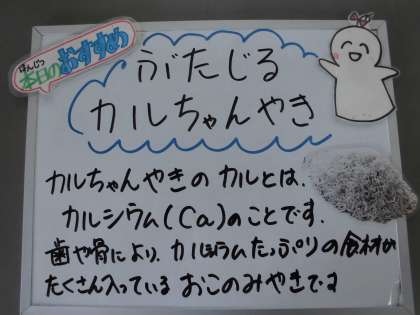 ほんじつ
本日のおすすめ
ぶたじる
カルちゃんやき
カルちゃんやきの カルとは、
カルシウム(Ca)のことです。
歯や骨により、カルシウムたっぷりの食材が
たくさん入っている おこのみやきです